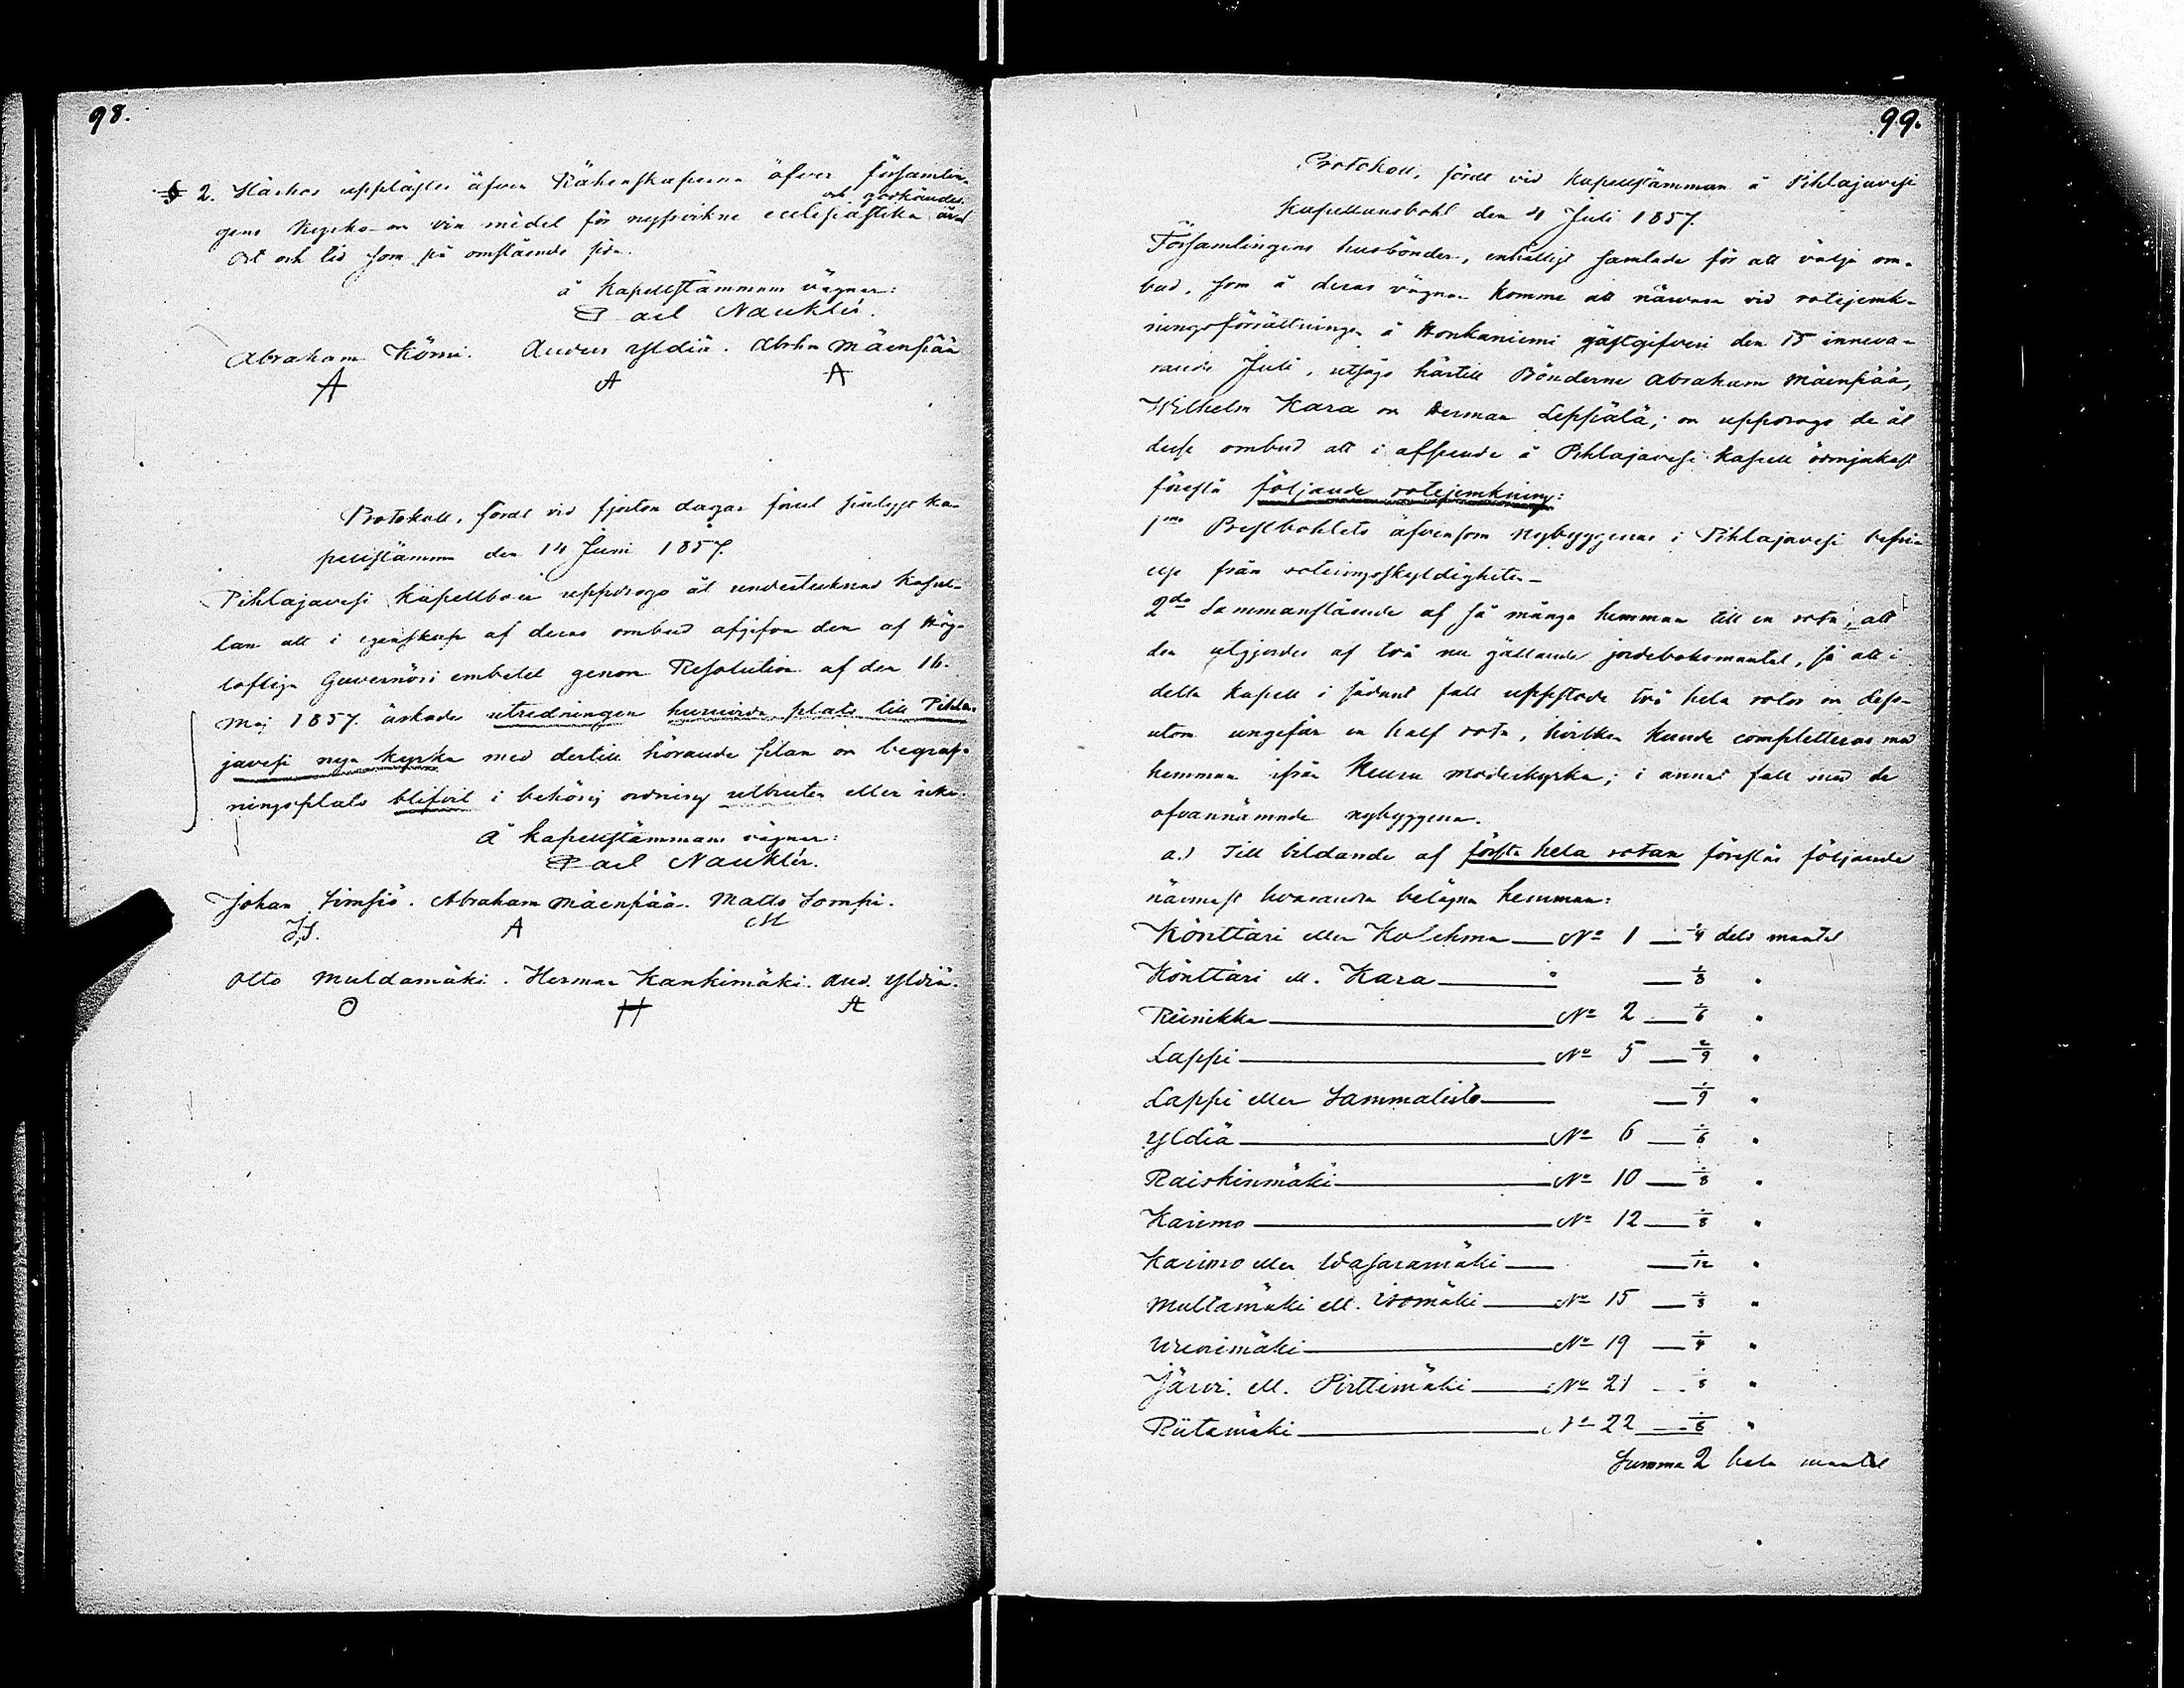 98.
§ 2. Härhos upplästes äfven Räkenskaperna öfver församlin-
och godkändes
gens Kyrko- och vin medel för ecclesiastika året
Ort och tid som på omstående sida.
å Kapellstämmans vägnar:
Carl Nauklér.
Abraham Kömi. Anders Yldiä. Abrhm Mäenpää
A A A
Protokoll, fördt vid fjorton dagar förut pålyst ka-
pellstämma den 14 Juni 1857.
Pihlajavesi Kapellboer uppdrogo åt undertecknad Kapel-
lan att i egenskap af deras ombud afgifva den af Hög-
loflige Guvernörs embetet genom Resolution af den 16.
Maj 1857. äskade utredningen huruvida plats till Pihla-
javesi nya kyrka med dertill hörande plan och begraf-
ningsplats blifvit i behörig ordning utbruten eller icke.
Å kapellstämmans vägnar:
Carl Nauklér.
Johan Simsiö. Abraham Mäenpää. Matts Sompi.
J.S. A M
Otto Muldamäki. Herman Kankimäki. And. Yldiä.
O H A
99.
Protokoll, fördt vid kapellstämman å Pihlajavesi
Kapellansbohl den 4 Juli 1857.
Församlingens husbönder, enhälligt samlade för att välja om-
bud, som å deras vägnar komme att närvara vid rotejemk-
ningsförrättningen å Honkaniemi gästgifveri den 15 inneva-
rande Juli, utsågo härtill Bönderne Abraham Mäenpää,
Wilhelm Kara och Herman Leppälä; och uppdrogo de åt
desse ombud att i afseende å Pihlajavesi kapell ödmjukast
föreslå följande rotejemkning:
1mo Prestbohlets äfvensom nybyggenas i Pihlajavesi befri-
else från roteringsskyldigheten –
2do Sammanslående af så många hemman till en rota, att
den utgjordes af två nu gällande jordebokomantal, så att i
detta kapell i sådant fall uppstode två hela rotor och dess-
utom ungefär en half rota, hvilken kunde completteras med
hemman ifrån Keuru moderkyrka; i annat fall med de
ofvannämnde nybyggena.
a.) Till bildande af första hela rotan föreslås följande
närmast hvarandra belägna hemman:
Könttäri eller Kolehma — No 1 — 1/4 dels mantal
Könttäri ell. Kara — " — 1/8 "
Reinikka — No 2 — 1/6 "
Lappi — No 5 — 2/9 "
Lappi eller Sammalisto — 1/9 "
Yldiä — No 6 — 1/6 "
Raiskinmäki — No 10 — 1/8 "
Karimo — No 12 — 1/8 "
Karimo eller Wasaramäki — 1/12 "
Multamäki ell. Isomäki — No 15 — 1/8 "
Wuorimäki — No 19 — 1/4 "
Järvi ell. Pirttimäki — No 21 — 1/8 "
Riitamäki — No 22 — 1/8 "
Summa 2 hela mantal